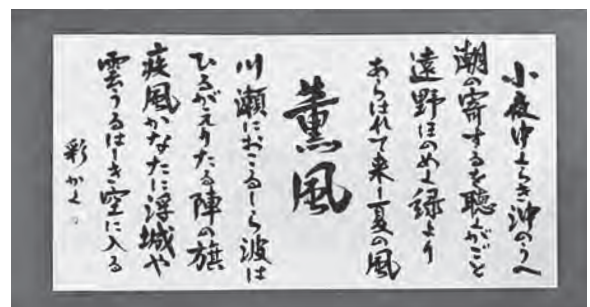 小夜中くらき沖のうへ
潮の寄するを聴くがごと
遠野ほのめく緑より
あらはれて来し夏の風
薫風
川瀬におこるしら波は
ひるがえりたる陣の旗
疾風かなたに浮城や
雲うるはしき空に入る
彩かく。